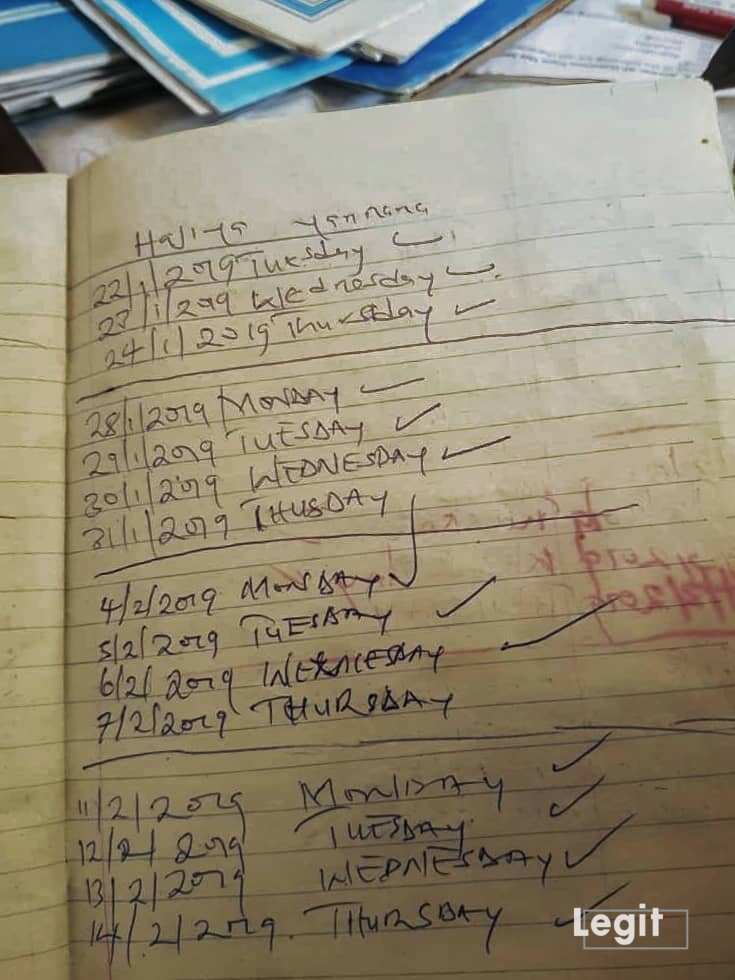 Hajiya Yannana
22/1/2019 Tuesday
23/1/2019 Wednesday
24/1/2019 Thursday
28/1/2019 MONDAY
29/1/2019 TUESDAY
30/1/2019 WEDNESDAY
31/1/2019 THUSDAY
4/2/2019 MONDAY
5/2/2019 TUESDAY
6/2/2019 WEDNESDAY
7/2/2019 THURSDAY
11/2/2019 MONDAY
12/2/2019 TUESDAY
13/2/2019 WEDNESDAY
14/2/2019. THURSDAY
Legit